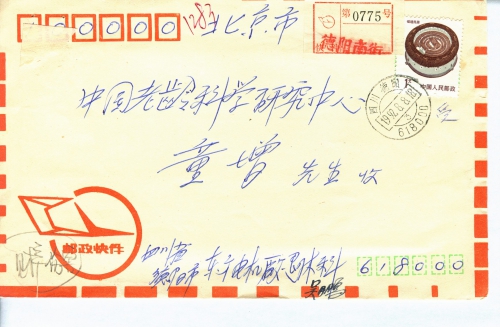 1283
北京市
第0775号
德阳南街
中国人民邮政
中国老龄科学研究中心
童增 先生 收
四川 德阳
618000
邮政快件
四川省
德阳市 东方电机厂 科
618000